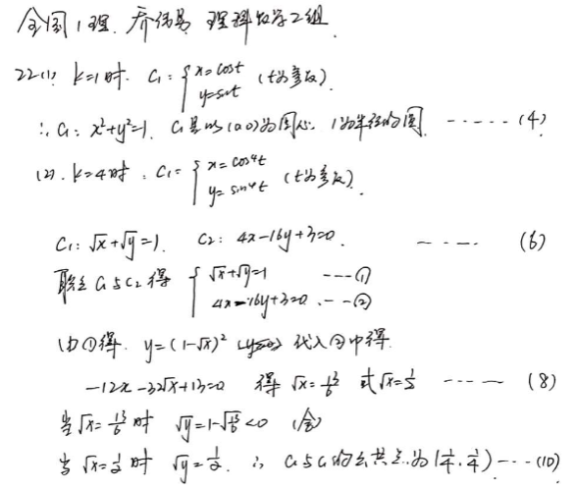 全国1理. 乔伟男 理科数学2组.
22(1) k=1时. C₁: { x=cost y=sint (t为参数).
∴ C₁: x²+y²=1. C₁是以(0,0)为圆心. 1为半径的圆. ······ (4)
(2). k=4时. C₁= { x=cos⁴t y=sin⁴t (t为参数).
C₁: √x+√y=1. C₂: 4x-16y+3=0. ---- (6)
联立C₁与C₂得 { √x+√y=1 ---① 4x-16y+3=0 ---②
由①得. y=(1-√x)² 代入②中得.
-12x-32√x+13=0 得 √x=13/6 或√x=1/2 ······ (8)
当√x=13/6时 √y=1-√13/6<0 (舍)
当√x=1/2时 √y=1/2. ∴ C₁与C₂的公共点为(1/4, 1/4)---(10)